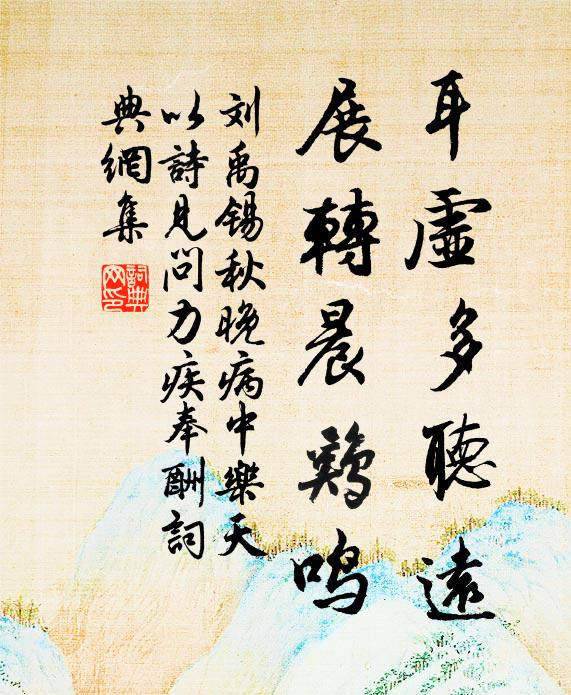 耳虛多聽遠
展轉晨鷄鳴
刘禹锡秋晚病中樂天
以詩見问力疾奉酬詞
典網集
詞典網印